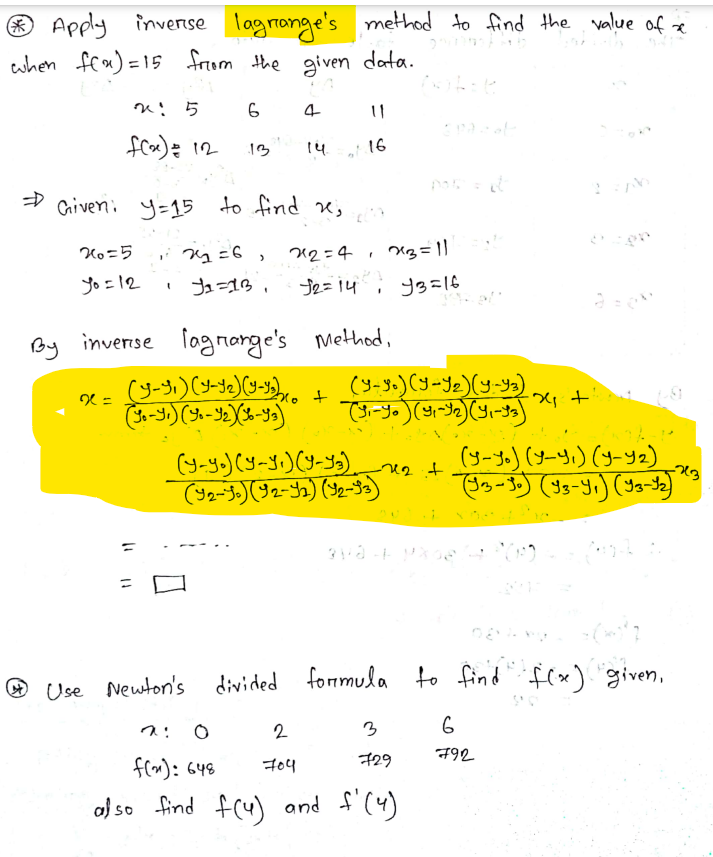 ⊛ Apply inverse lagrange's method to find the value of x
when f(x)=15 from the given data.
x: 5 6 4 11
f(x): 12 13 14 16
⇒ Given: y=15 to find x,
x₀=5, x₁=6, x₂=4, x₃=11
y₀=12, y₁=13, y₂=14, y₃=16
By inverse lagrange's Method,
x = (y-y₁)(y-y₂)(y-y₃)/(y₀-y₁)(y₀-y₂)(y₀-y₃) x₀ + (y-y₀)(y-y₂)(y-y₃)/(y₁-y₀)(y₁-y₂)(y₁-y₃) x₁ +
(y-y₀)(y-y₁)(y-y₃)/(y₂-y₀)(y₂-y₁)(y₂-y₃) x₂ + (y-y₀)(y-y₁)(y-y₂)/(y₃-y₀)(y₃-y₁)(y₃-y₂) x₃
= ......
= □
⊛ Use Newton's divided formula to find f(x) given,
x: 0 2 3 6
f(x): 648 704 729 792
also find f(4) and f'(4)